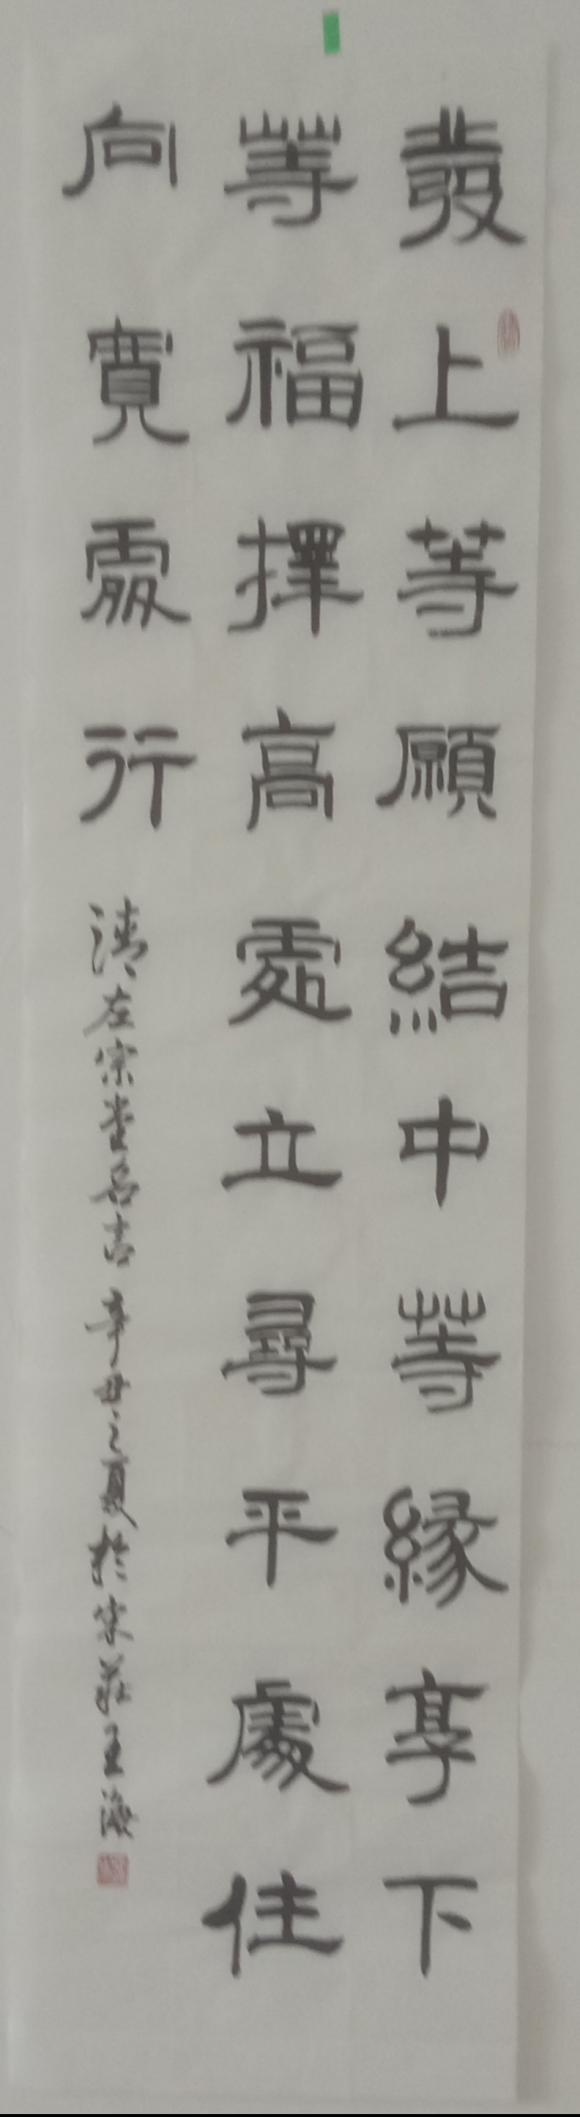 發上等願結中等緣享下
等福擇高處立尋平處住
向寬處行
清左宗棠名言 辛丑之夏於宋莊王海